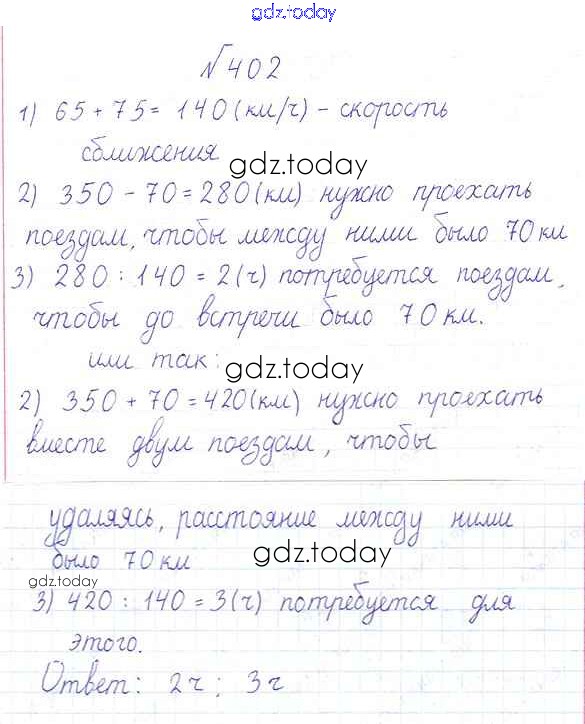 gdz.today
№ 402
1) 65 + 75 = 140 (км/ч) - скорость
сближения
gdz.today
2) 350 - 70 = 280 (км) нужно проехать
поездам, чтобы между ними было 70 км
3) 280 : 140 = 2 (ч) потребуется поездам,
чтобы до встречи было 70 км.
или так:
gdz.today
2) 350 + 70 = 420 (км) нужно проехать
вместе двум поездам, чтобы
удаляясь, расстояние между ними
было 70 км
gdz.today
gdz.today
3) 420 : 140 = 3 (ч) потребуется для
этого.
Ответ: 2 ч; 3 ч